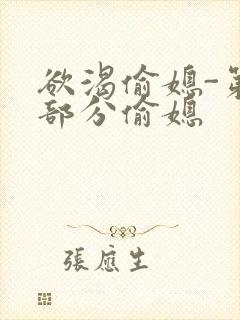 欲渴偷媳-第
部分偷媳
張應生